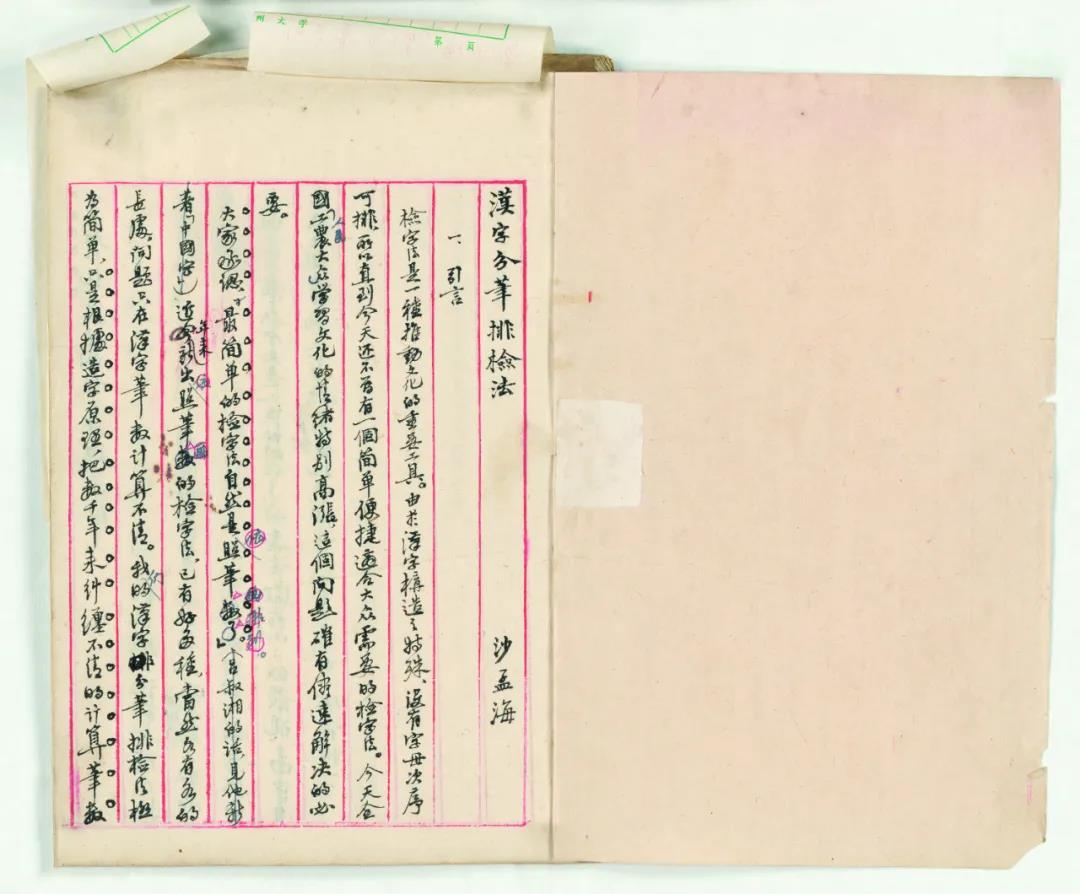 州大学
第 页
漢字分筆排檢法 沙孟海
一、引言
檢字法是一種推動文化的重要工具。由於漢字構造之特殊，沒有字母次序
可排，所以直到今天还不曾有一個简單便捷適合大众需要的檢字法。今天全
國人民工農大众学習文化的情绪特别高漲，這個问题確有儘速解决的必
要。
大家承認：「最简單的檢字法自然是照筆數了。」(吕叔湘的話，見他新
著「中國字」)近年来新出照筆數的檢字法，已有好多種，當然各有各的
長處，问题只在漢字筆數計算不清。我的漢字分筆排檢法极
为简單，只是根據造字原理，把數千年来糾纏不清的計算筆數